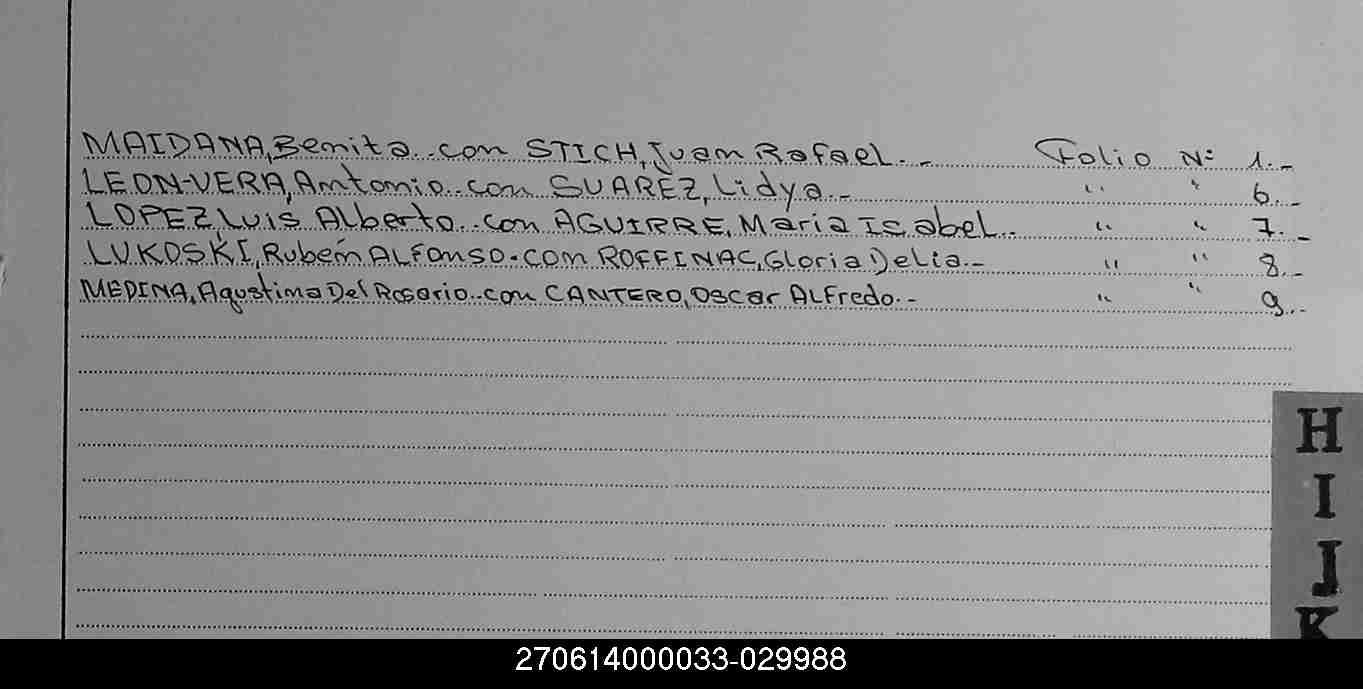 MAIDANA, Benita.. con STICH, Juan Rafael.- Folio Nº 1.-
LEON-VERA, Antonio.. con SUAREZ, Lidya.- " " 6.-
LOPEZ, Luis Alberto.. con AGUIRRE, Maria Isabel.. " " 7.-
LUKOSKI, Rubén Alfonso. con ROFFINAC, Gloria Delia.- " " 8.-
MEDINA, Agustina Del Rosario.. con CANTERO, Oscar Alfredo.- " " 9.-
H
I
J
K
270614000033-029988